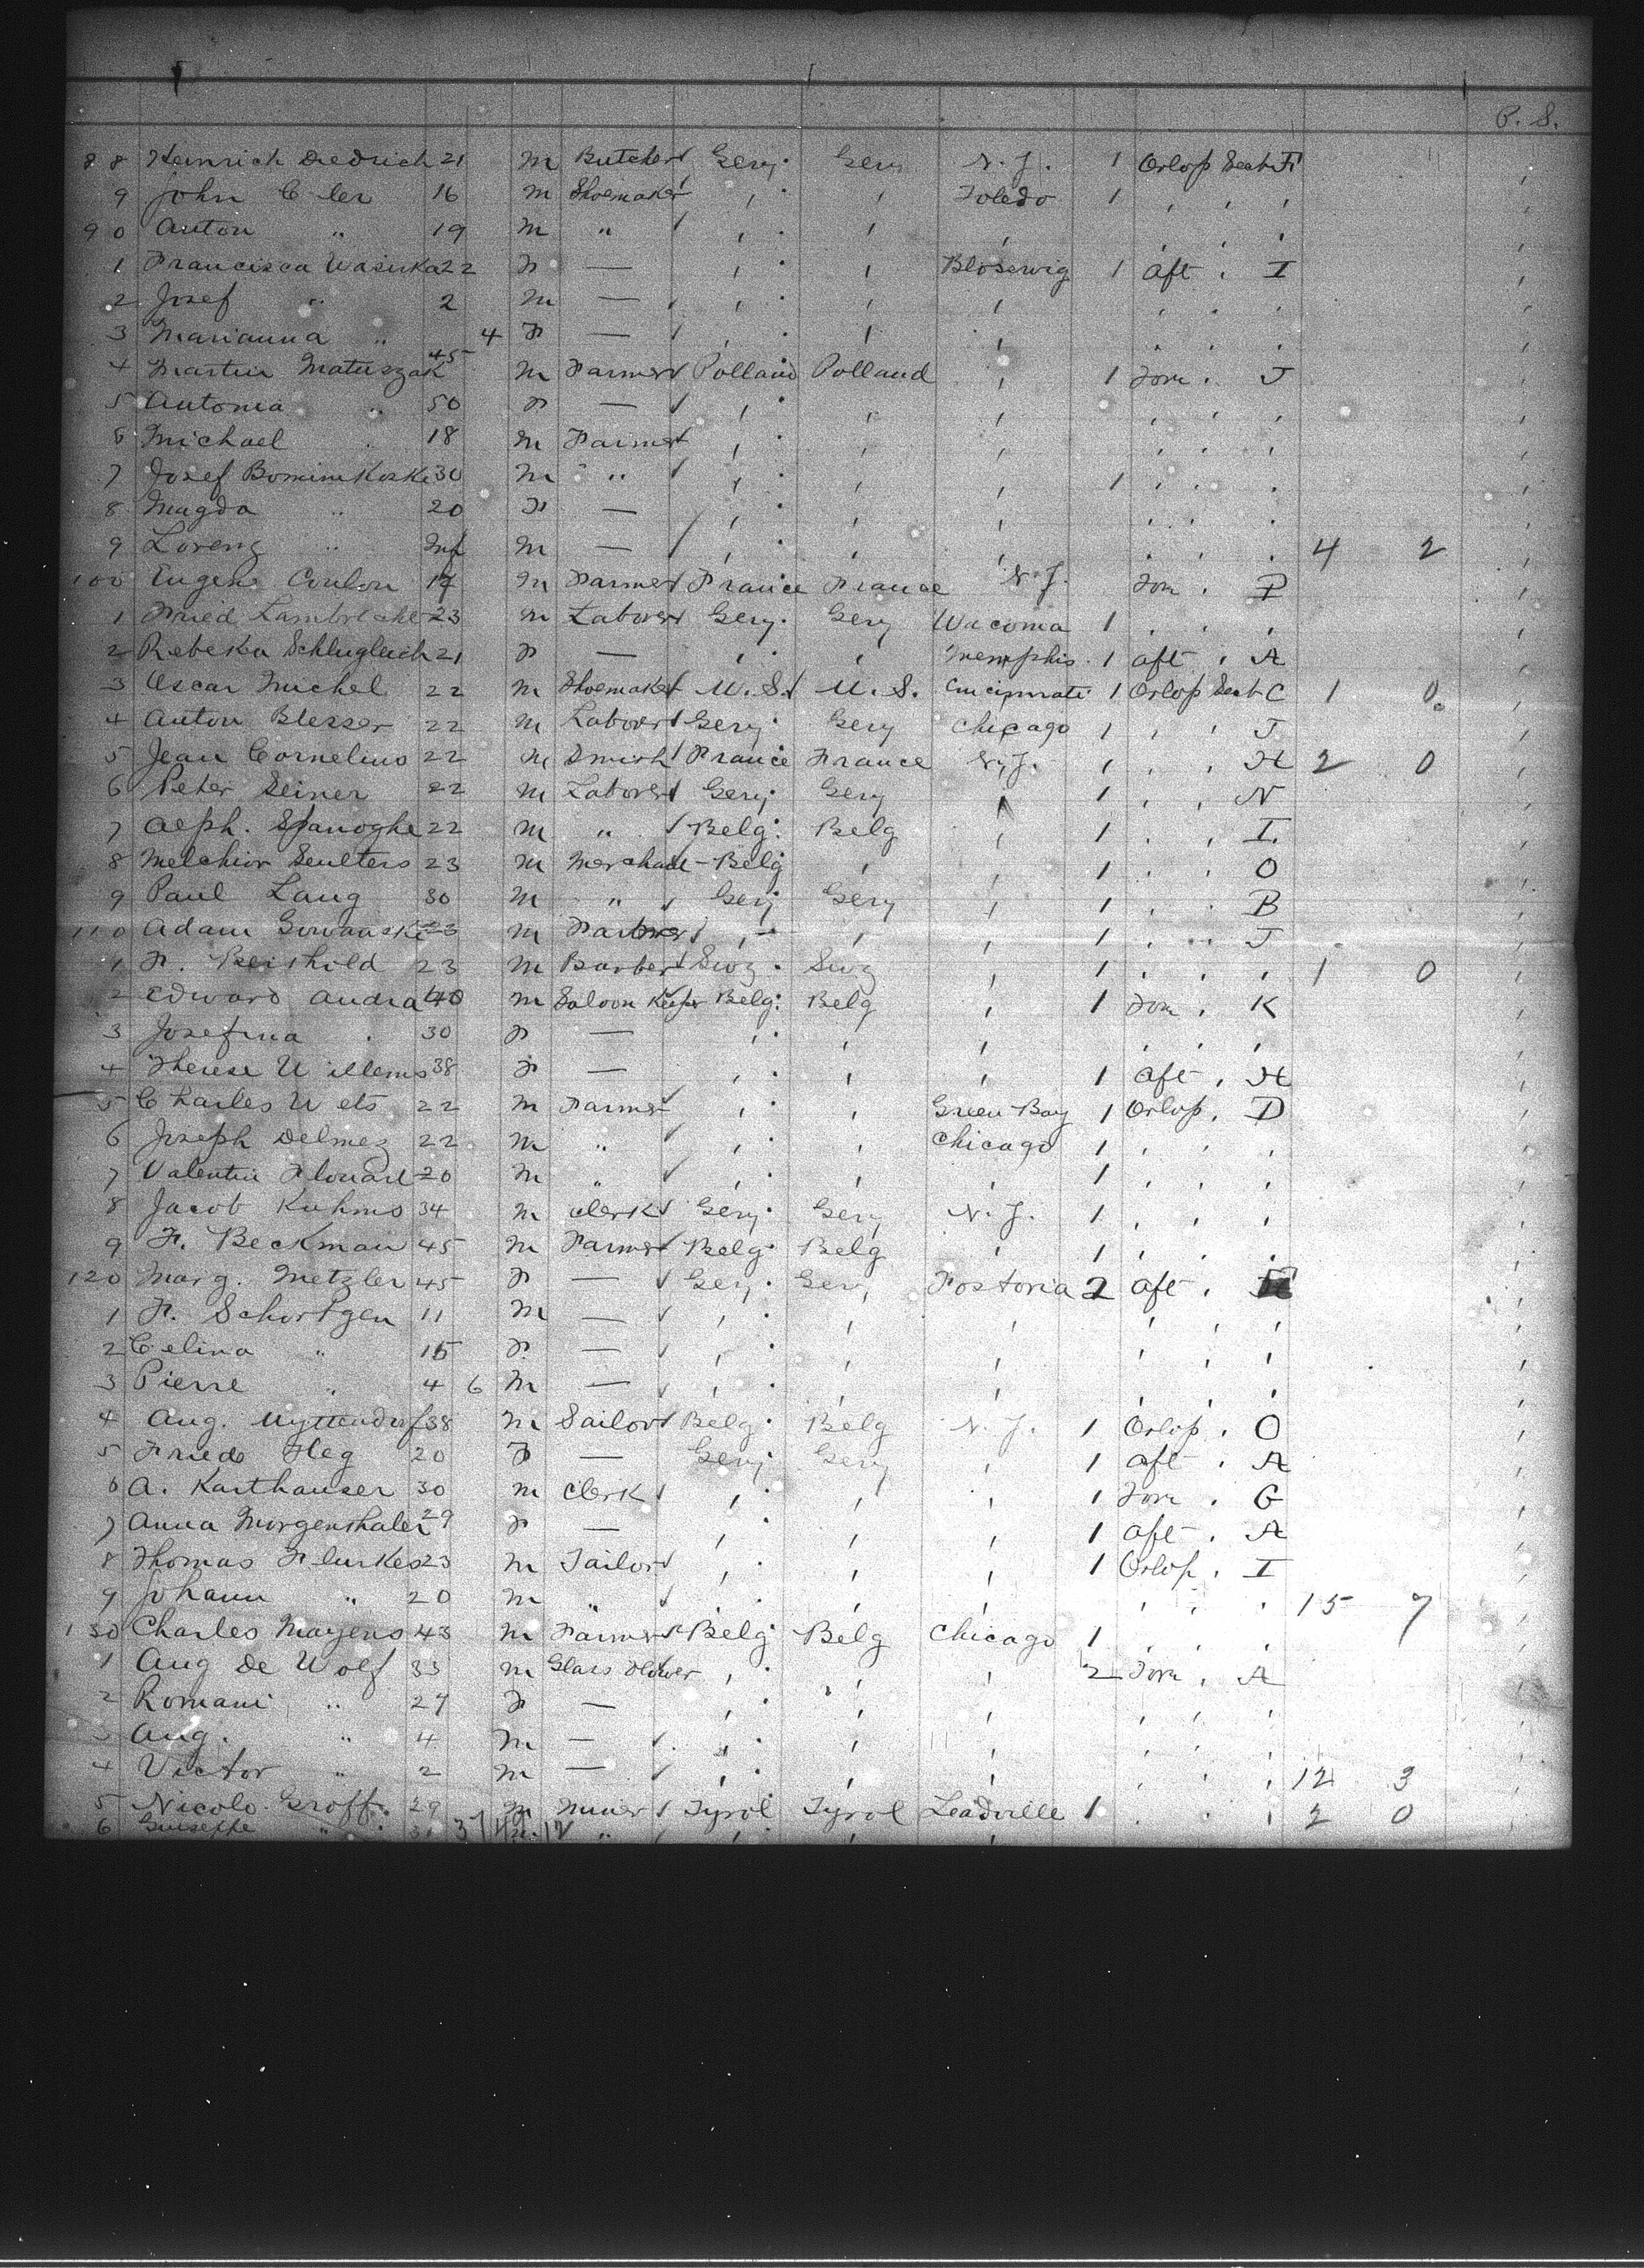 P. S.
88 Heinrich Diedrich 21 m Butcher Gery. Gery N. Y. 1 Orlop Deck F
9 John C ler 16 m Shoemaker , , Toledo 1 , , ,
90 Anton " 19 m " , , , , , ,
1 Francisca Wasirka 22 F — , , 1 Aft , I
2 Josef " 2 m — , , , , , ,
3 Marianna " 4 F — , , , , , ,
4 Martin Matuszak 45 m Farmer Polland Polland , 1 Forw , J
5 Antonia " 50 F — , , , , , ,
6 Michael " 18 m Farmer , , , , , ,
7 Josef 30 m " , , , 1 , , ,
8 Magda " 20 F — , , , , , ,
9 Lorenz " Inf m — , , , , , , 4 2
100 Eugene Coulon 17 m Farmer France France N. Y. Forw , P
1 Fried Lambrecht 23 m Laborer Gery. Gery Wacoma 1 , , ,
2 Rebeka 21 F — , , Memphis 1 Aft , A
3 Oscar Michel 22 m Shoemaker U. S. U. S. Cincinnati 1 Orlop Deck C 1 0
4 Anton Blesser 22 m Laborer Gery. Gery Chicago 1 , , J
5 Jean Cornelius 22 m Smith France France N. Y. 1 , , H 2 0
6 Peter Seiner 22 m Laborer Gery. Gery , 1 , , N
7 Alph. Spanoghe 22 m " Belg. Belg , 1 , , I.
8 Melchior Seulters 23 m Merchant - Belg , , 1 , , O
9 Paul Lang 30 m " Gery Gery , 1 , , B
110 Adam 23 m , , , 1 , , J
1 F. 23 m Barber Swz. Swz , 1 , , , 1 0
2 Edward 40 m Saloon Keeper Belg. Belg , 1 Forw , K
3 Josefina " 30 F — , , , , , ,
4 Therese Willems 38 F — , , , 1 Aft , H
5 Charles Wets 22 m Farmer , , Green Bay 1 Orlop , D
6 Joseph Delmez 22 m " , , Chicago 1 , , ,
7 Valentin 20 m " , , , 1 , , ,
8 Jacob Kuhms 34 m Clerk Gery. Gery N. Y. 1 , , ,
9 F. Beckman 45 m Farmer Belg. Belg , 1 , , ,
120 Marg. Metzler 45 F — Gery. Gery Fostoria 2 Aft , H
1 F. Schortgen 11 m — , , , , , ,
2 Celina " 15 F — , , , , , ,
3 Pierre " 4 6 m — , , , , , ,
4 Aug. Uyttendorf 38 m Sailor Belg. Belg N. Y. 1 Orlop , O
5 Frieda Heg 20 F — Gery Gery , 1 Aft , A
6 A. Karthauser 30 m Clerk , , , 1 Forw , G
7 Anna Morgenthaler 29 F — , , , 1 Aft , A
8 Thomas Flurkes 23 m Tailor , , , 1 Orlop , I
9 Johann " 20 m " , , , , , , 15 7
130 Charles Mayens 43 m Farmer Belg Belg Chicago 1 , , ,
1 Aug De Wolf 33 m Glass Blower , , , 2 Forw , A
2 Romani " 27 F — , , , , , ,
3 Aug. " 4 m — , , , , , ,
4 Victor " 2 m — , , , , , , 12 3
5 Nicolo Groff. 29 m Miner Tyrol Tyrol Leadville 1 , , , 2 0
6 Guiseppe " 31 37 49 12 " , , ,